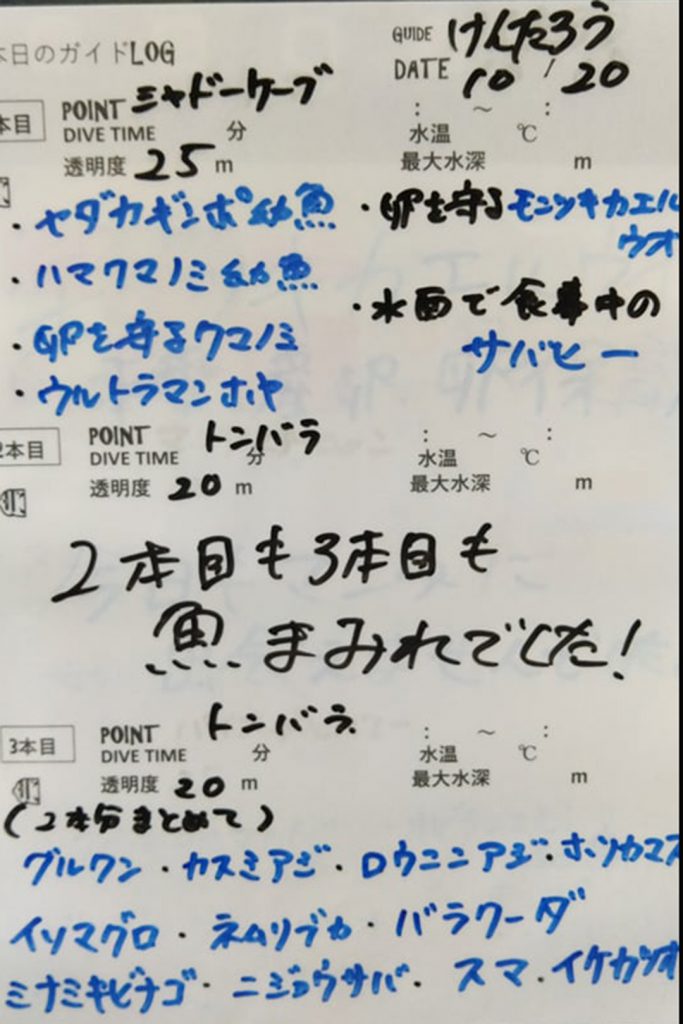 本日のガイドLOG
GUIDE けんたろう
DATE 10 / 20
本目 POINT シャドーケーブ
DIVE TIME 分 : ～ :
透明度 25 m 水温 ℃
最大水深 m
・セダカギンポ幼魚
・ハマクマノミ幼魚
・卵を守るクマノミ
・ウルトラマンホヤ
・卵を守るモンツキカエル
ウオ
・水面で食事中の
サバヒー
2本目 POINT トンバラ
DIVE TIME 分 : ～ :
透明度 20 m 水温 ℃
最大水深 m
2本目も3本目も
魚まみれでした!
3本目 POINT トンバラ
DIVE TIME 分 : ～ :
透明度 20 m 水温 ℃
最大水深 m
(2本分まとめて)
グルクン・カスミアジ・ロウニンアジ・ホソカマス
イソマグロ・ネムリブカ・バラクーダ
ミナミキビナゴ・ニジョウサバ・スマ・イケカツオ